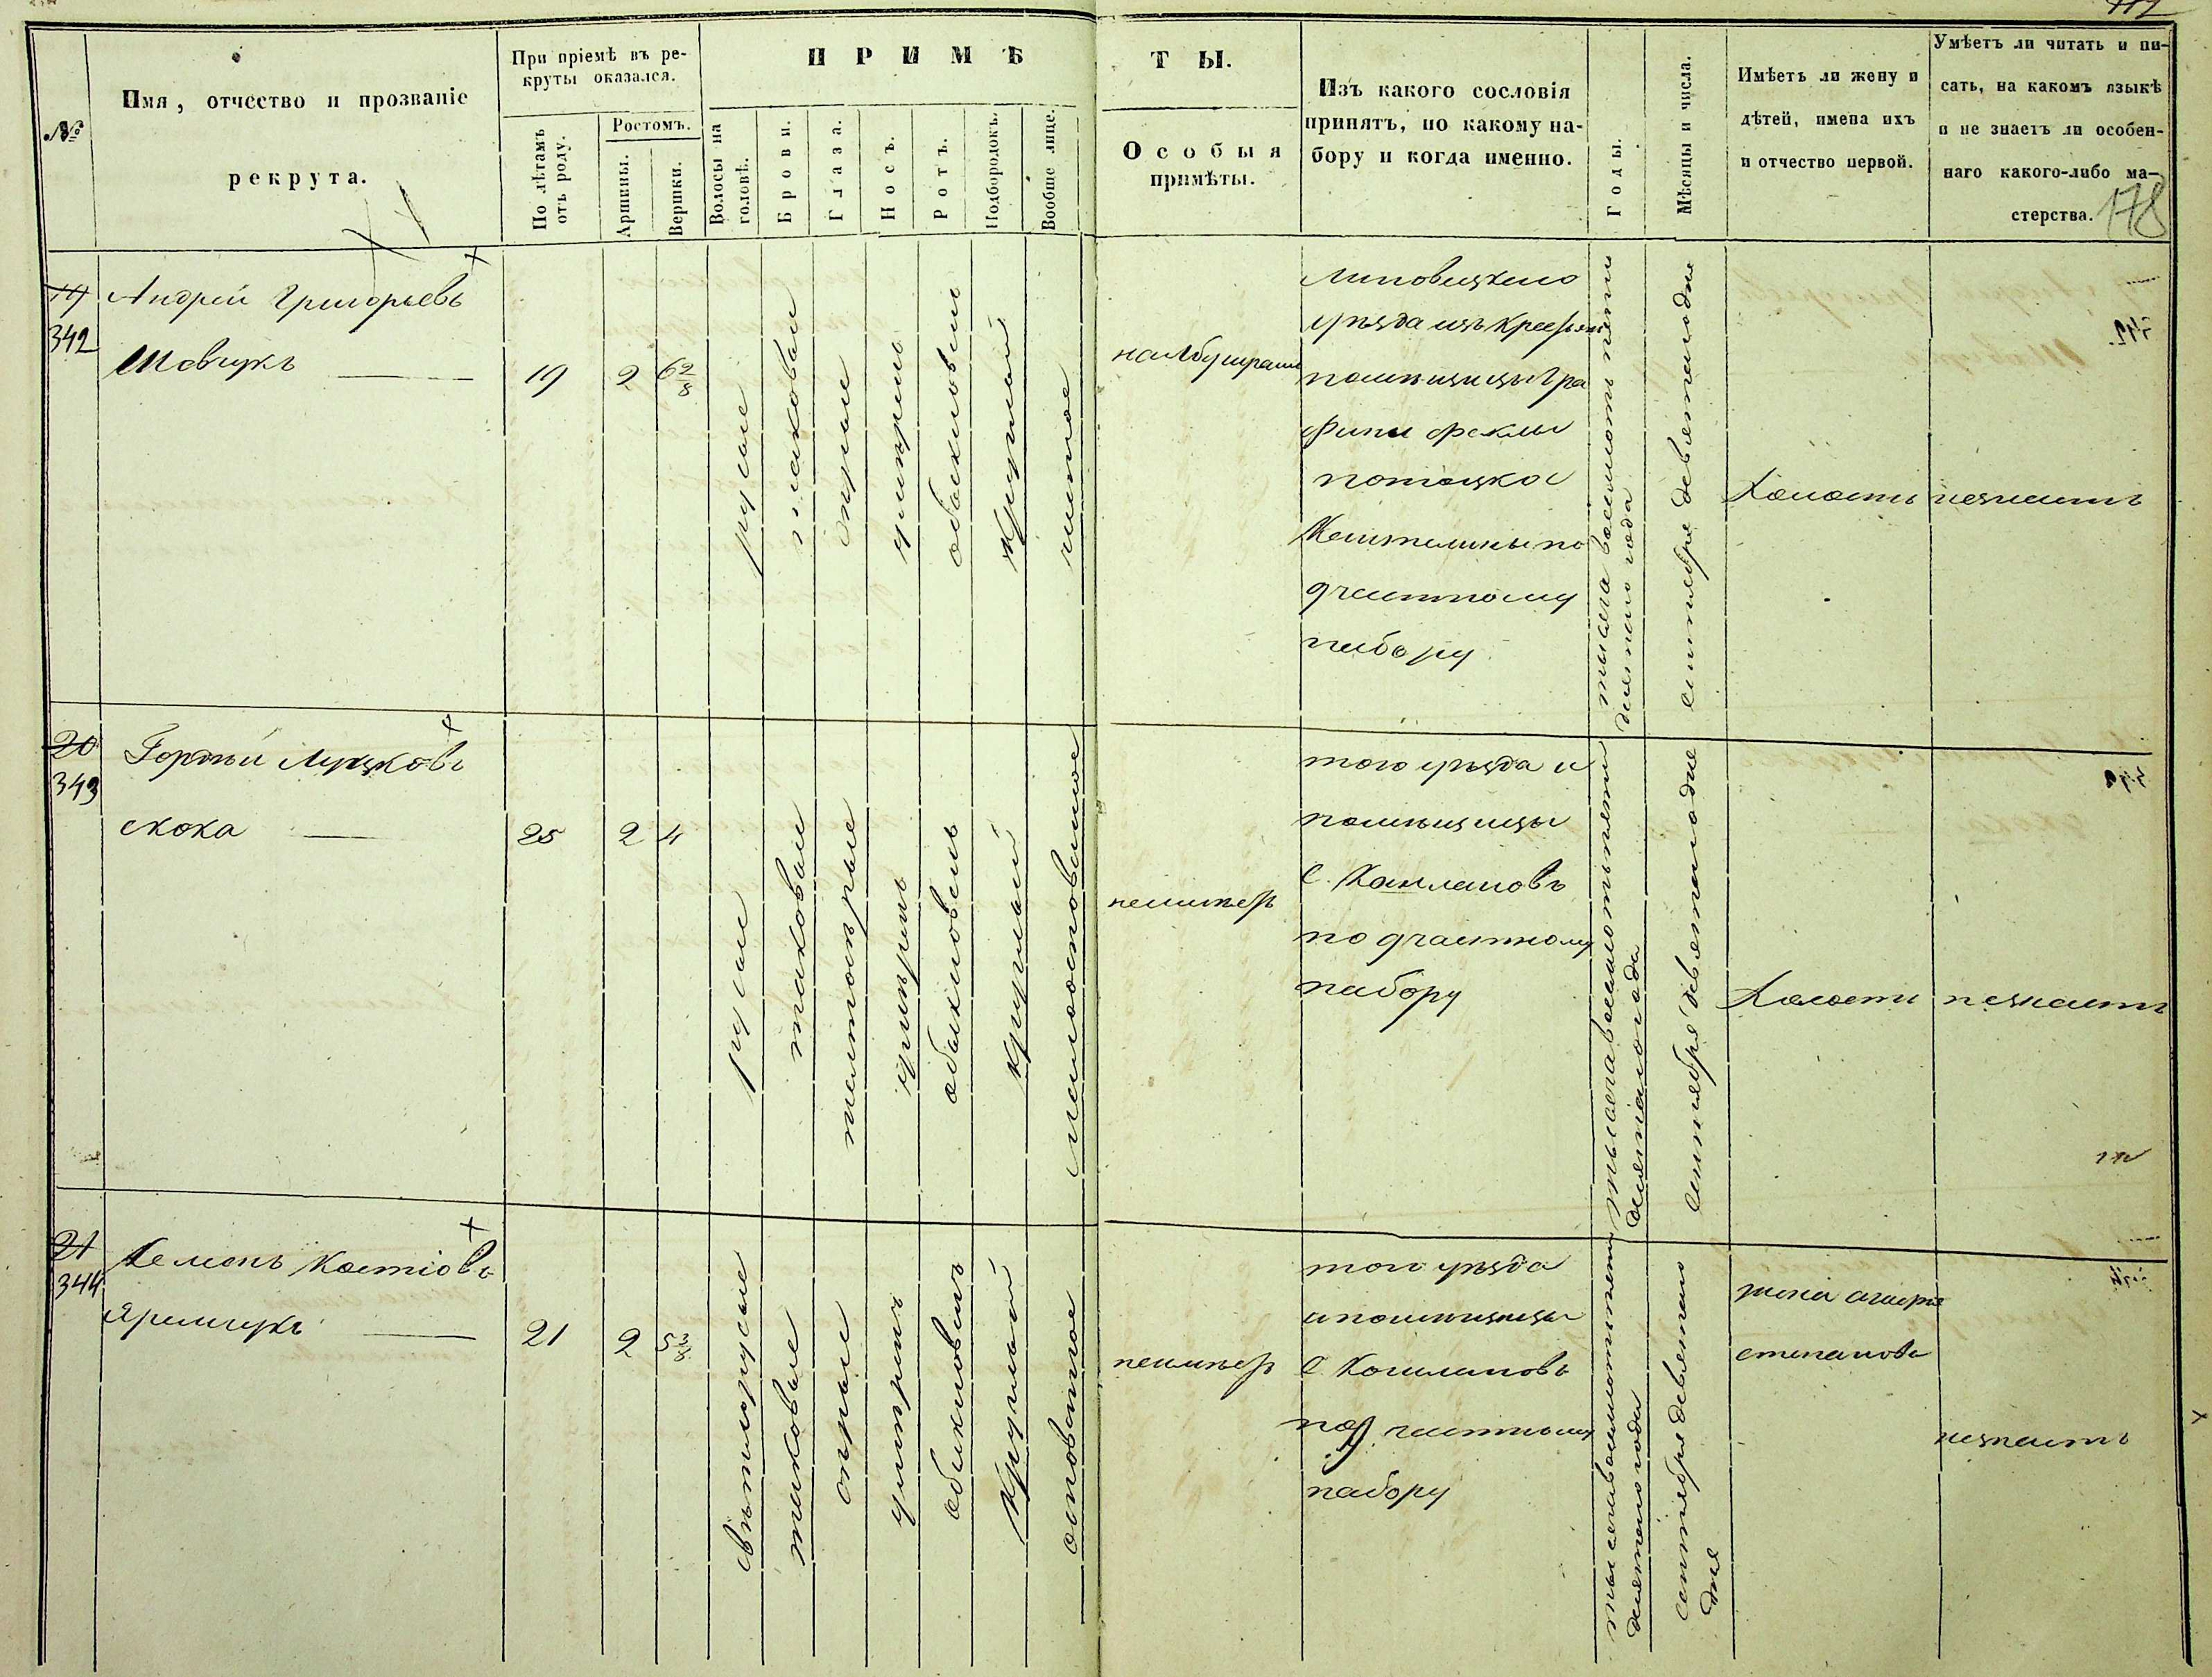 112
№
Имя, отчество и прозваніе
рекрута.
При пріемѣ въ ре-
круты оказался.
По лѣтамъ
отъ роду.
Ростомъ.
Аршины.
Вершки.
ПРИМѢ
ТЫ.
Волосы на
головѣ.
Брови.
Глаза.
Носъ.
Ротъ.
Подбородокъ.
Вообще лице.
Особыя
примѣты.
Изъ какого сословія
принятъ, по какому на-
бору и когда именно.
Годы.
Мѣсяцы и числа.
Имѣетъ ли жену и
дѣтей, имена ихъ
и отчество первой.
Умѣетъ ли читать и пи-
сать, на какомъ языкѣ
и не знаетъ ли особен-
наго какого-либо ма-
стерства.
178
19
342
Андрей Григорьевъ
Шевчукъ
19
2
6 2/8
русые
таковые
сѣрые
умѣренъ
обыкновенъ
круглый
чистое
на лбу шрамъ
Липовецкого
уѣзда изъ Крестьянъ
помѣщицы Гра
фини Феклы
потоцкой
по
9 частному
набору
тысяча восемсотъ пять
десятого года
сентября девятого дня
Холостъ
незнаетъ
20
343
Гордій
скока
25
2
4
русые
таковые
умѣренъ
обыкновенъ
круглый
неимѣетъ
того уѣзда и
помѣщицы
С.
по 9 частному
набору
тысяча восемсотъ пять
десятого года
сентября девятого дня
Холостъ
незнаетъ
21
344
Семенъ Костіовъ
Яремчукъ
21
2
5 3/8
свѣтлорусые
таковые
сѣрые
умѣренъ
обыкновенъ
круглый
неимѣетъ
того уѣзда
и помѣщицы
С.
по 9 частному
набору
тысяча восемсотъ пять
десятого года
сентября девятого
дня
жена
степанова
незнаетъ